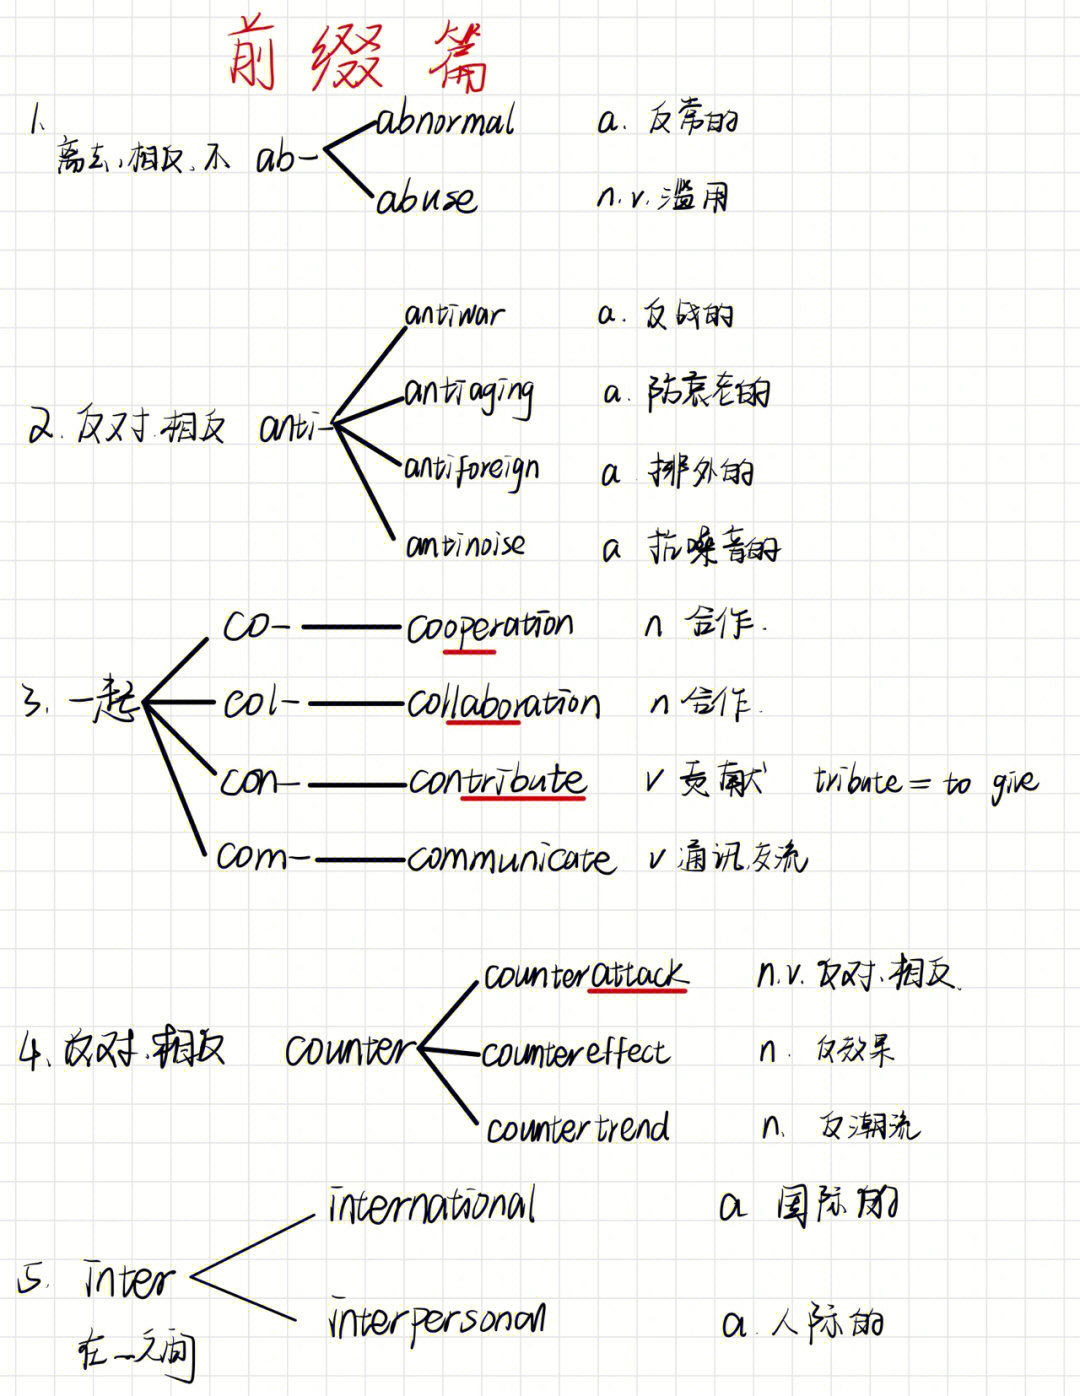 前缀篇
1、
离去、相反、不 ab- abnormal a. 反常的
abuse n.v. 滥用
antiwar a. 反战的
antiaging a. 防衰老的
2. 反对.相反 anti-
antiforeign a 排外的
antinoise a 抗噪音的
co- cooperation n 合作.
3. 一起 col- collaboration n 合作.
con- contribute v 贡献 tribute = to give
com- communicate v 通讯,交流
counterattack n.v. 反对、相反.
4、反对.相反 counter countereffect n. 反效果
countertrend n. 反潮流
international a 国际的
5. inter
在...之间
interpersonal a. 人际的